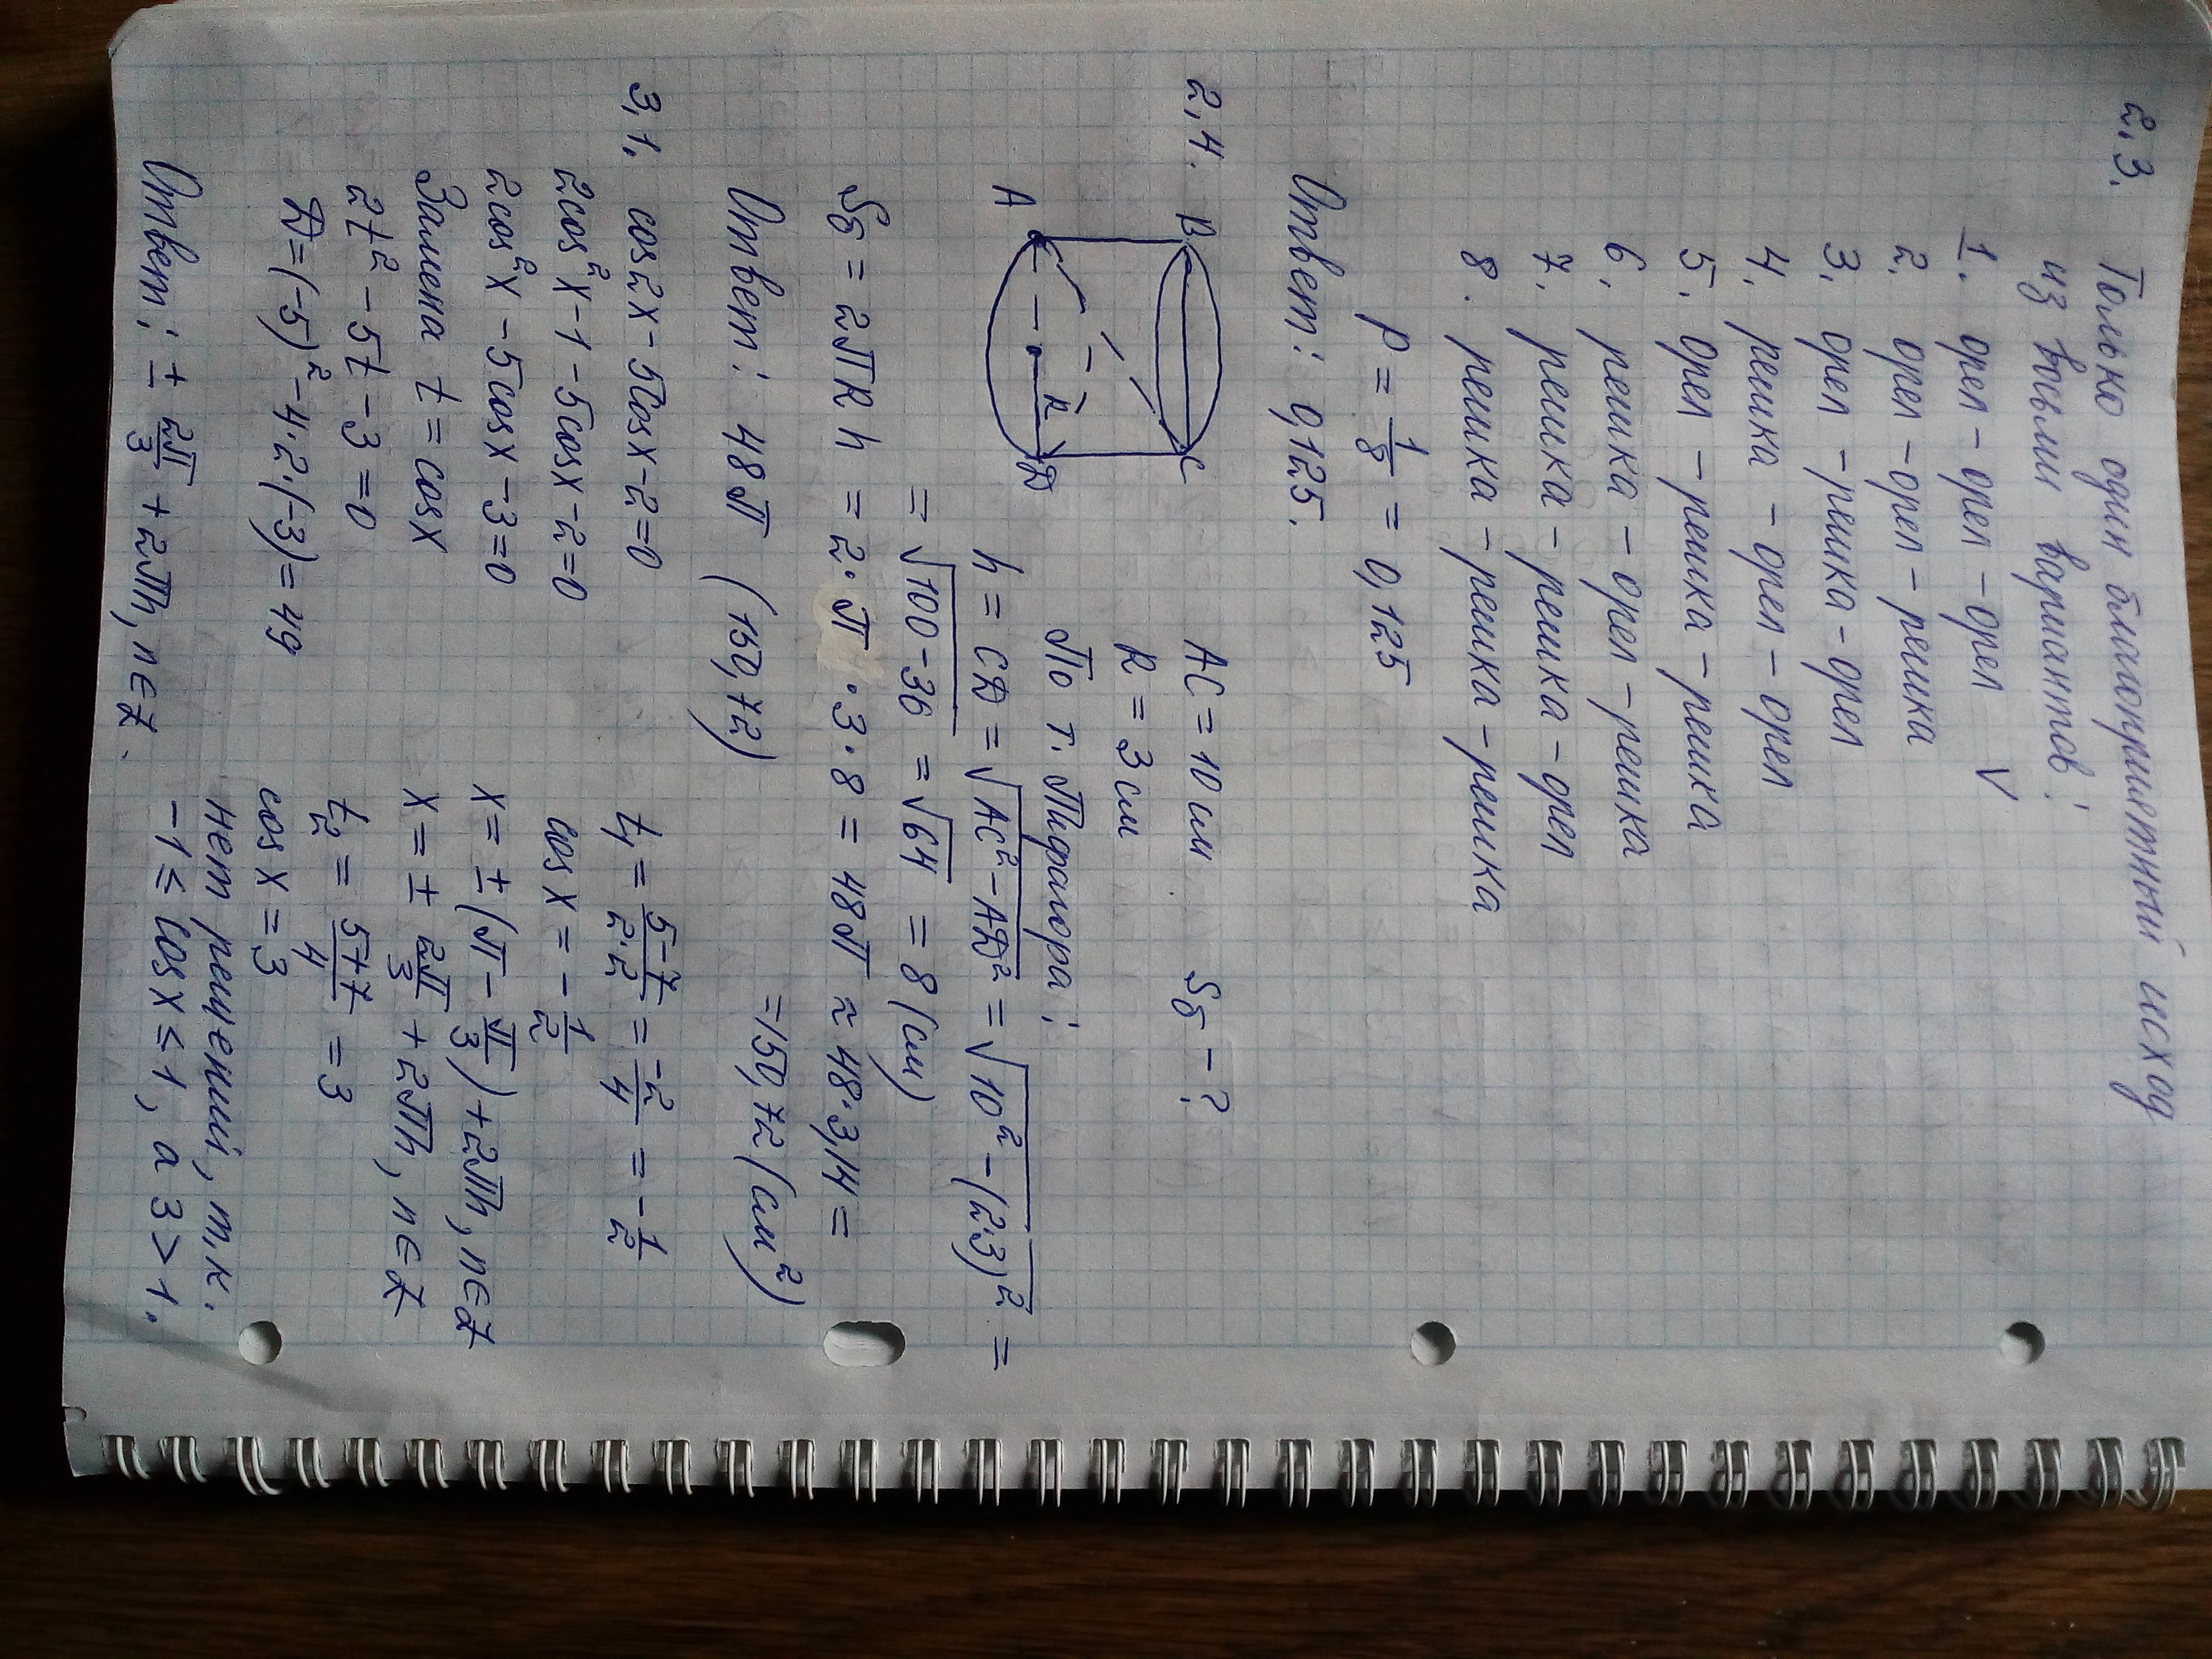 2,3. Только один благоприятный исход
из восьми вариантов:
1. орел - орел - орел V
2. орел - орел - решка
3. орел - решка - орел
4. решка - орел - орел
5. орел - решка - решка
6. решка - орел - решка
7. решка - решка - орел
8. решка - решка - решка
P = 1/8 = 0,125
Ответ: 0,125.
2,4. AC = 10 см Sб - ?
R = 3 см
B C
A R D
По т. Пифагора:
h = CD = √(AC² - AD²) = √(10² - (2·3)²) =
= √(100 - 36) = √64 = 8 (см)
Sб = 2πRh = 2·π·3·8 = 48π ≈ 48·3,14 =
= 150,72 (см²)
Ответ: 48π (150,72)
3,1. cos2x - 5cosx - 2 = 0
2cos²x - 1 - 5cosx - 2 = 0
2cos²x - 5cosx - 3 = 0
Замена t = cosx
2t² - 5t - 3 = 0
D = (-5)² - 4·2·(-3) = 49
t₁ = (5-7)/(2·2) = -2/4 = -1/2
cosx = -1/2
x = ±(π - π/3) + 2πn, n∈Z
x = ± 2π/3 + 2πn, n∈Z
t₂ = (5+7)/4 = 3
cosx = 3
нет решений, т.к.
-1 ≤ cosx ≤ 1, а 3 > 1.
Ответ: ± 2π/3 + 2πn, n∈Z.